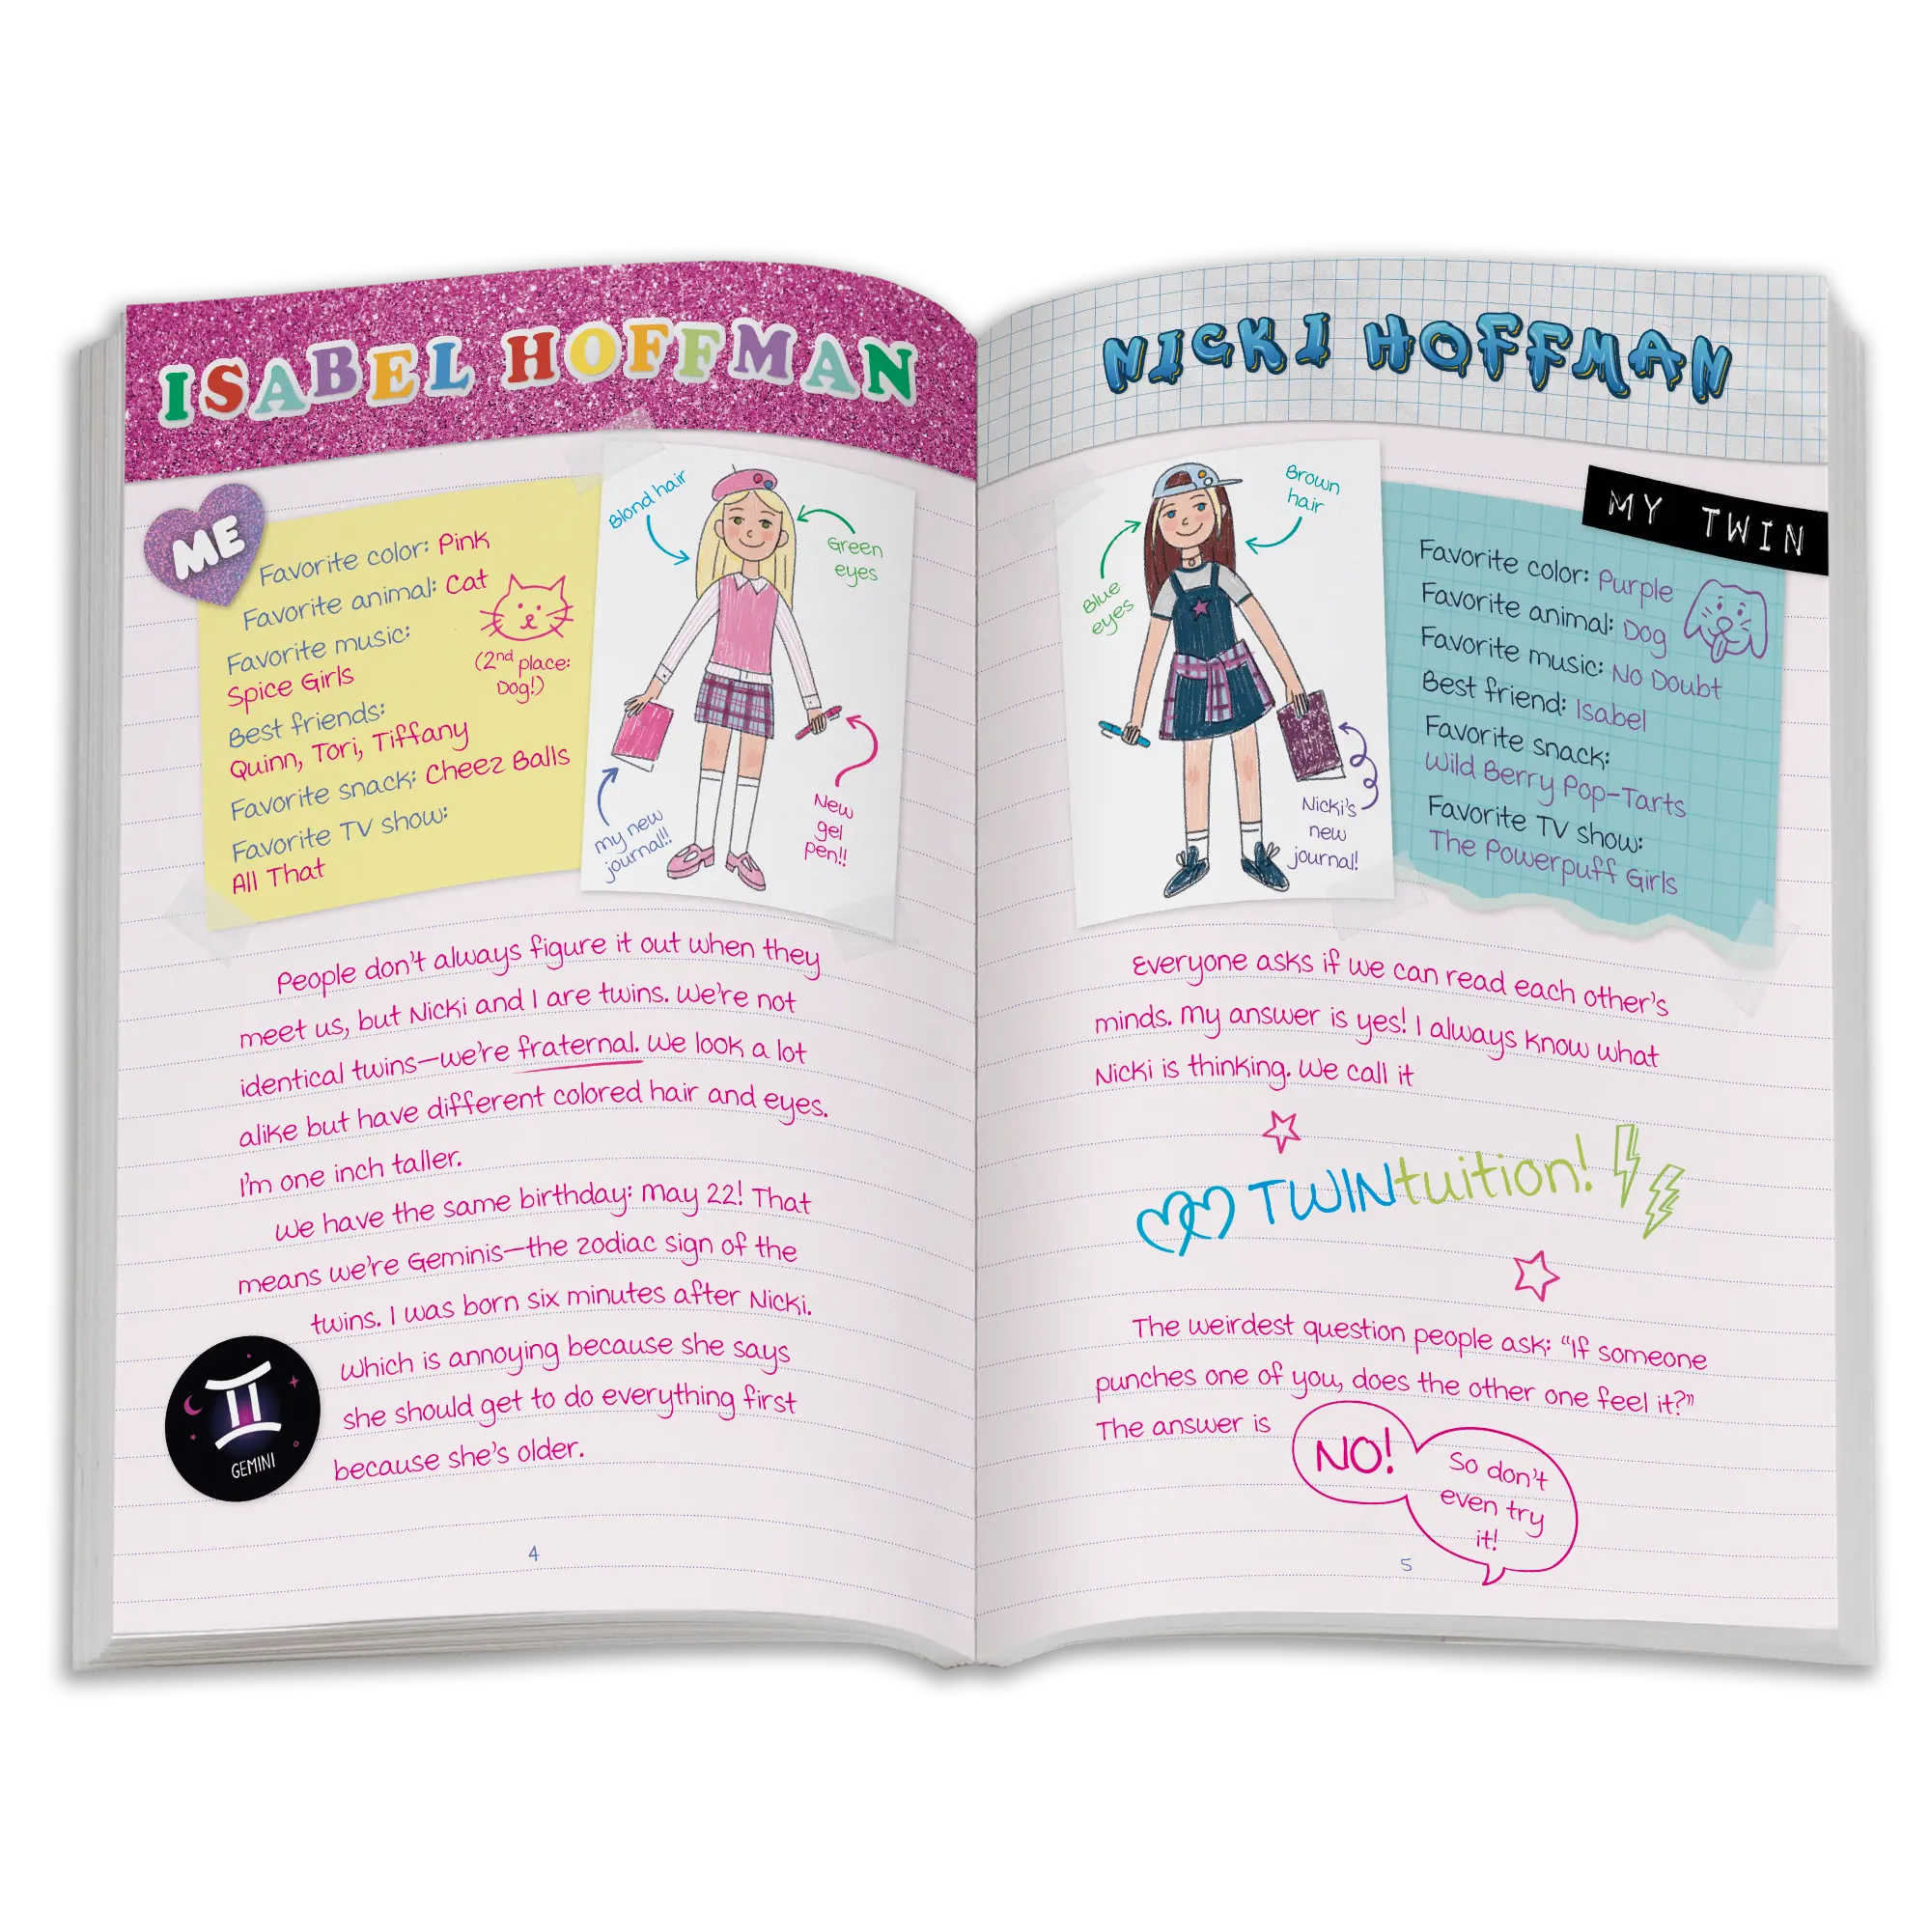 ISABEL HOFFMAN
ME
Favorite color: Pink
Favorite animal: Cat
Favorite music:
Spice Girls
(2nd place:
Dog!)
Best friends:
Quinn, Tori, Tiffany
Favorite snack: Cheez Balls
Favorite TV show:
All That
Blond hair
Green
eyes
my new
journal!!
New
gel
pen!!
People don't always figure it out when they
meet us, but Nicki and I are twins. We're not
identical twins—we're fraternal. We look a lot
alike but have different colored hair and eyes.
I'm one inch taller.
We have the same birthday: May 22! That
means we're Geminis—the zodiac sign of the
twins. I was born six minutes after Nicki.
Which is annoying because she says
she should get to do everything first
because she's older.
GEMINI
4
NICKI HOFFMAN
MY TWIN
Brown
hair
Blue
eyes
Nicki's
new
journal!
Favorite color: Purple
Favorite animal: Dog
Favorite music: No Doubt
Best friend: Isabel
Favorite snack:
Wild Berry Pop-Tarts
Favorite TV show:
The Powerpuff Girls
Everyone asks if we can read each other's
minds. My answer is yes! I always know what
Nicki is thinking. We call it
TWINtuition!
The weirdest question people ask: “If someone
punches one of you, does the other one feel it?”
The answer is
NO!
So don't
even try
it!
5